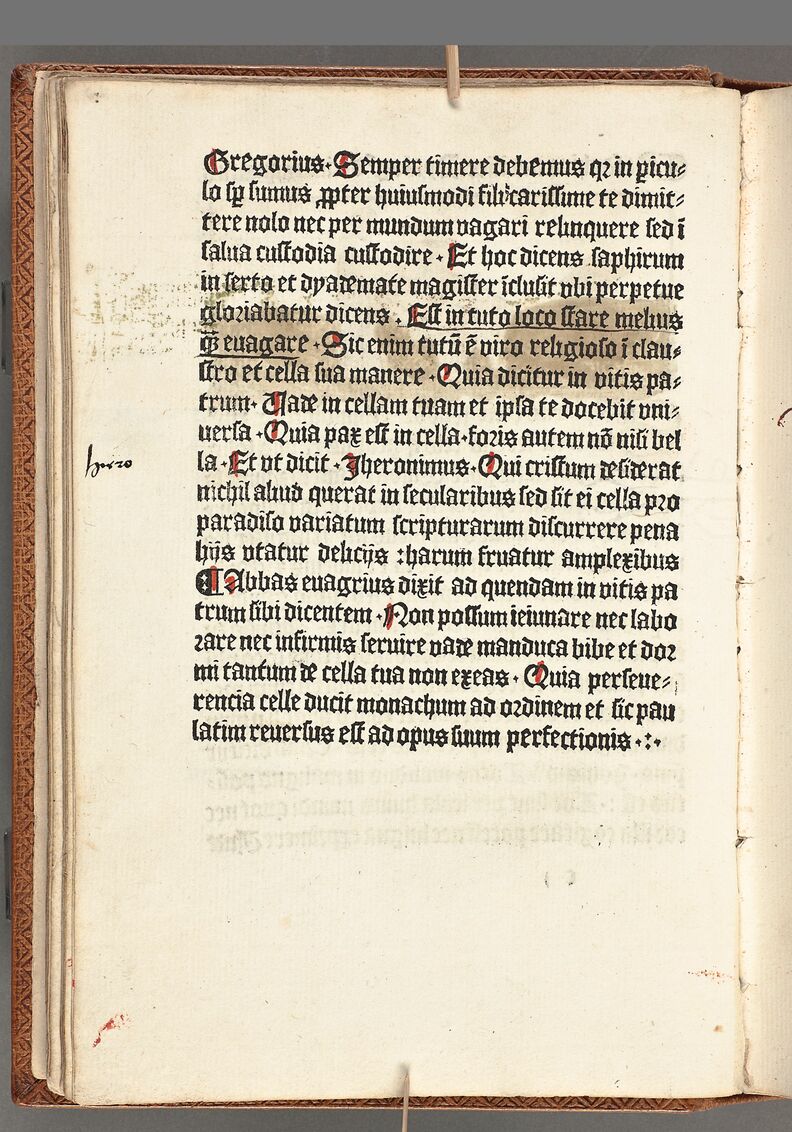 Gregorius. Semper timere debemus qꝛ in ꝑicu⸗
lo sꝑ sumus ꝓpter huiusmodi fili carissime te dimit⸗
tere nolo nec per mundum vagari relinquere sed ī
salua custodia custodire. Et hoc dicens saphirum
in serto et dyademate magister īclusit vbi perpetue
gloriabatur dicens. Est in tuto loco stare melius
ꝙ̄ euagare. Sic enim tutū ē viro religioso ī clau⸗
stro et cella sua manere. Quia dicitur in vitis pa⸗
trum. Uade in cellam tuam et ipsa te docebit vni⸗
uersa. Quia pax est in cella. foris autem nō nisi bel
hiero
la. Et vt dicit. Jheronimus. Qui cristum desiderat
nichil aliud querat in secularibus sed sit ei cella pro
paradiso variatum scripturarum discurrere pena
hijs vtatur delicijs : harum fruatur amplexibus
¶ Abbas euagrius dixit ad quendam in vitis pa
trum sibi dicentem. Non possum ieiunare nec labo
rare nec infirmis seruire vade manduca bibe et dor
mi tantum de cella tua non exeas. Quia perseue⸗
rencia celle ducit monachum ad ordinem et sic pau
latim reuersus est ad opus suum perfectionis .:.